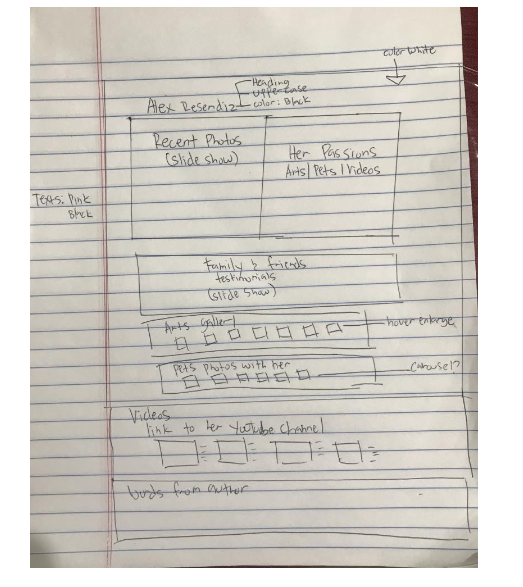 color white
Heading
uppercase
color: Black
Alex Resendiz
Recent Photos
(slide show)
Her Passions
Arts | Pets | Videos
Texts: Pink
Black
Family & friends
testimonials
(slide show)
Arts Gallery
hover enlarge
Pets photos with her
carousel?
Videos
link to her YouTube Channel
words from author